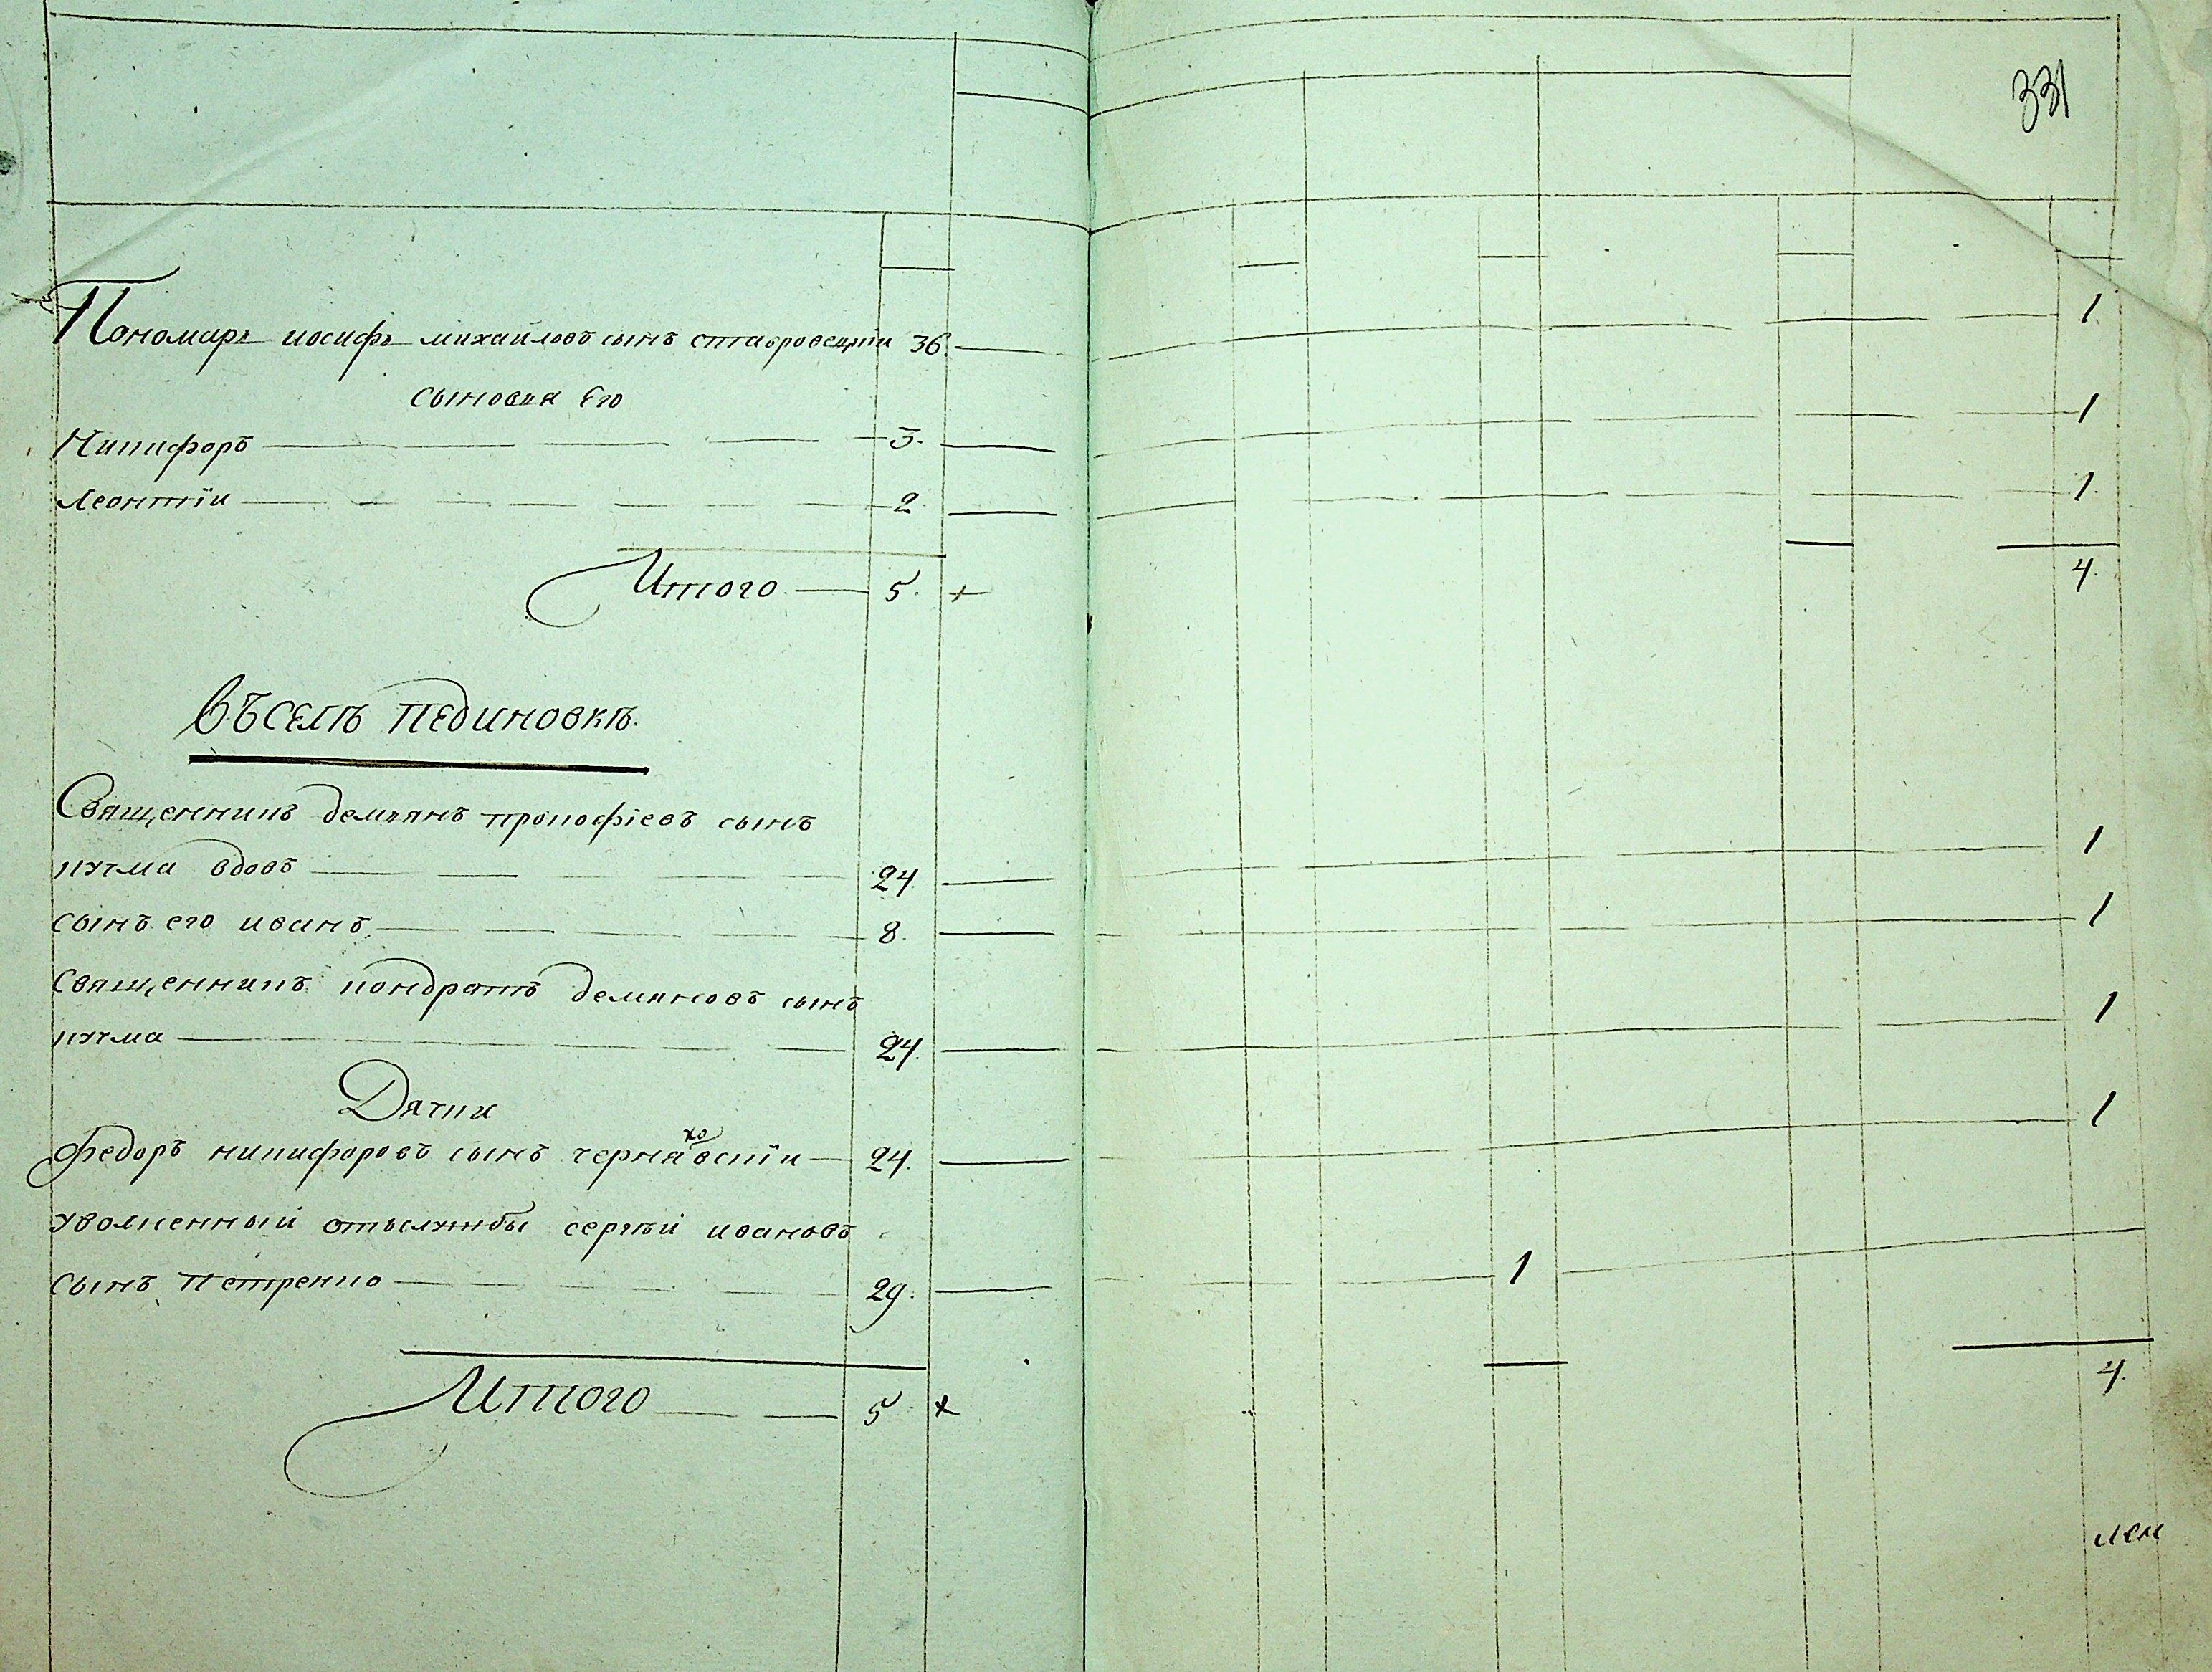 331
Пономарь иосифъ михайловъ сынъ ставровецкiи 36. 1
сыновья Его
Никифоръ 3. 1
Леонтїи 2. 1.
Итого 5. + 4.
Въ селѣ Пединовкѣ.
Священникъ демьянъ прокофіевъ сынъ
кучма вдовъ 24. 1
сынъ его иванъ 8. 1
Священникъ кондратъ демяновъ сынъ
кучма 24. 1
Дячки
Федоръ никифоровъ сынъ черняховскїи 24. 1
уволненный отъ службы сергѣй ивановъ
сынъ Петренко 29. 1
Итого 5 + 4.